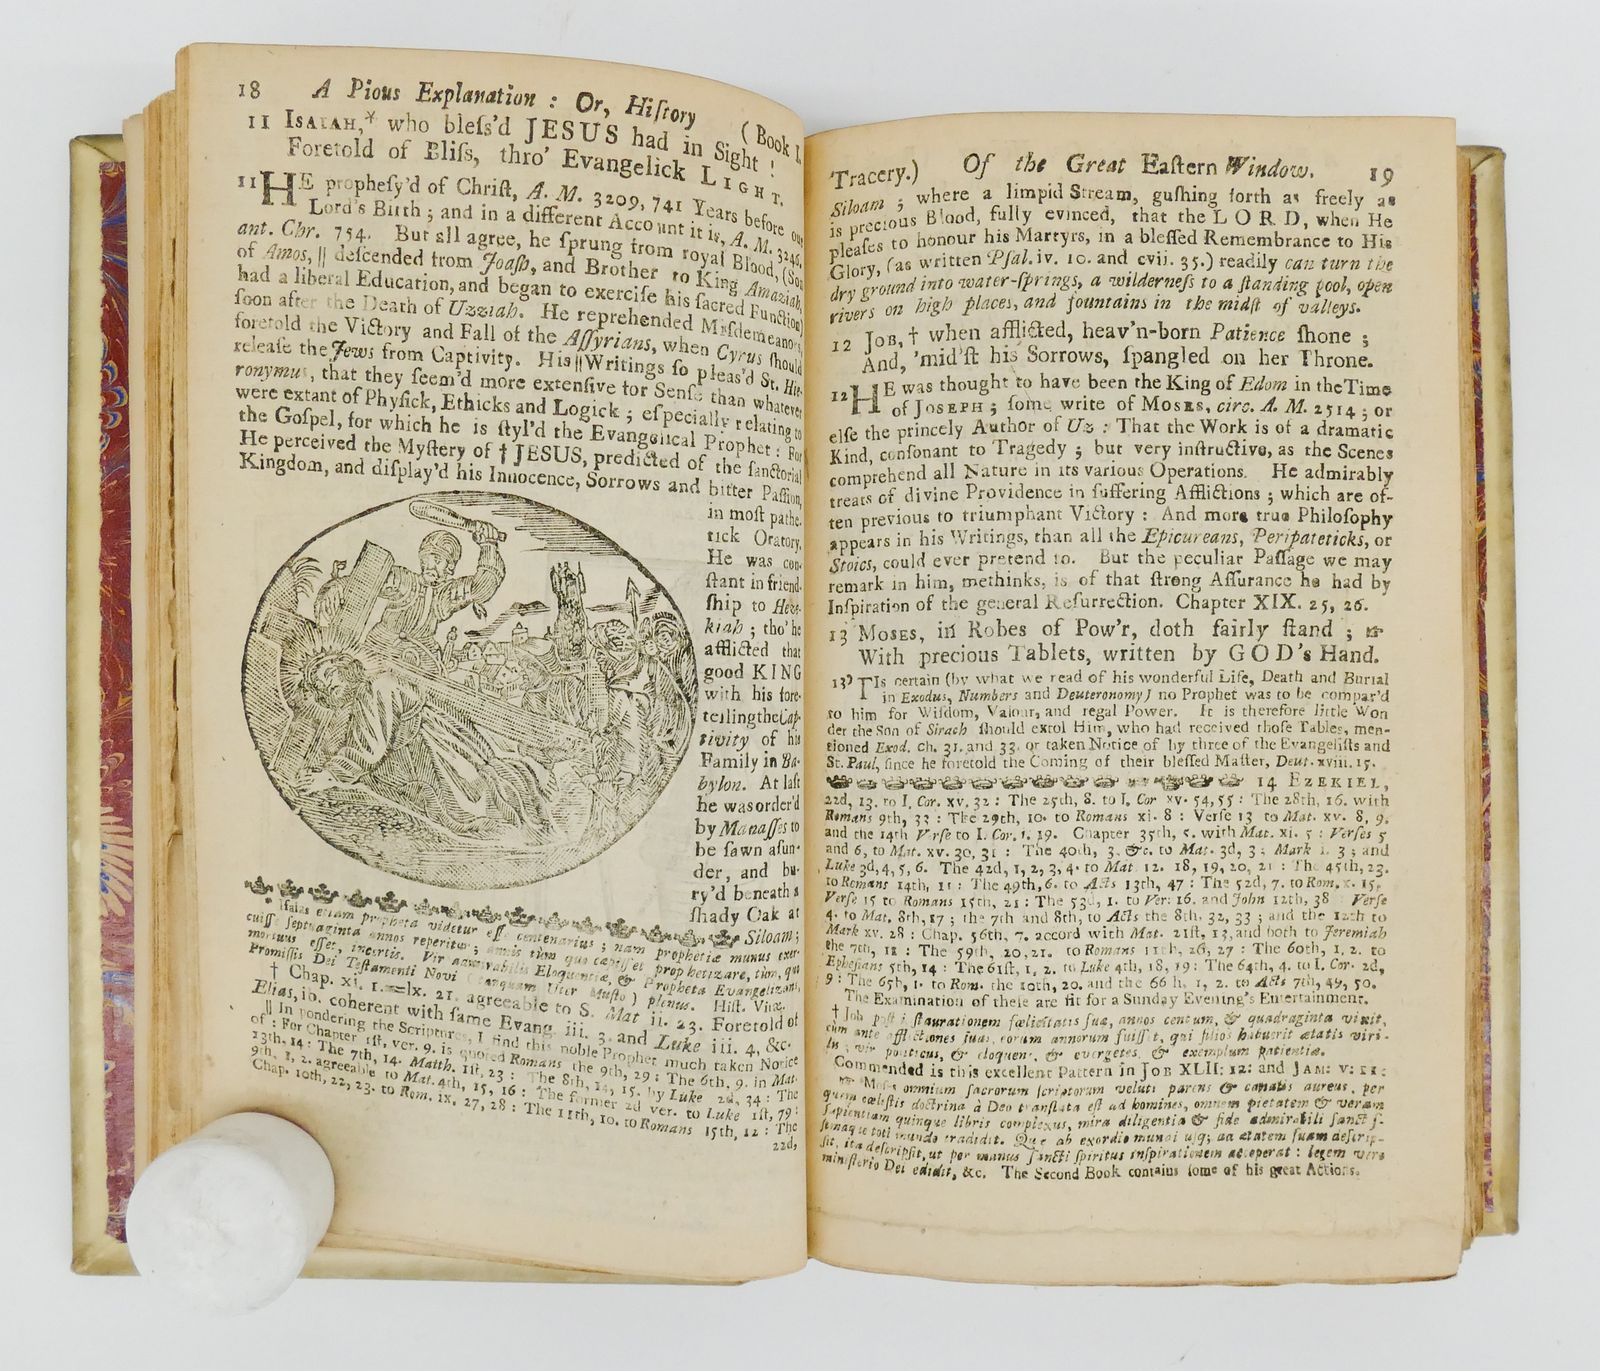 18 A Pious Explanation : Or, Hiſtory (Book I.
11 ISAIAH,* who bleſs'd JESUS had in Sight !
Foretold of Bliſs, thro' Evangelick LIGHT.
11 HE propheſy'd of Chriſt, A. M. 3209, 741 Years before our
Lord's Birth ; and in a different Account it is, A. M. 3246,
ant. Chr. 754. But all agree, he ſprung from royal Blood, (Son
of Amos, || deſcended from Joaſh, and Brother to King Amaziah,
had a liberal Education, and began to exerciſe his ſacred Function)
ſoon after the Death of Uzziah. He reprehended Miſdemeanors,
foretold the Victory and Fall of the Aſſyrians, when Cyrus ſhould
releaſe the Jews from Captivity. His || Writings ſo pleas'd St. Hie-
ronymus, that they ſeem'd more extenſive for Senſe than whatever
were extant of Phyſick, Ethicks and Logick ; eſpecially relating to
the Goſpel, for which he is ſtyl'd the Evangelical Prophet : For
He perceived the Myſtery of † JESUS, predicted of the ſanctorial
Kingdom, and diſplay'd his Innocence, Sorrows and bitter Paſſion,
in moſt pathe-
tick Oratory.
He was con-
ſtant in friend-
ſhip to Heze-
kiah ; tho' he
afflicted that
good KING
with his fore-
telling the Cap-
tivity of his
Family in Ba-
bylon. At laſt
he was order'd
by Manaſſes to
be ſawn aſun-
der, and bu-
ry'd beneath a
ſhady Oak at
Siloam ;
Iſaias etiam propheta videtur eſſe centenarius ; nam prophetiæ munus exer-
cuiſſe ſeptuaginta annos reperitur ; annis tùm quo cœpiſſet prophetizare, tùm, quo
mortuus eſſet, incertis. Vir admirabilis Eloquentiæ, & Propheta Evangelizans,
Promiſſis Dei Teſtamenti Novi (tanquam Uter Muſto) plenus. Hiſt. Vitæ.
† Chap. xi. 1.==lx. 21. agreeable to S. Mat ii. 23. Foretold of
Elias, ib. coherent with ſame Evang. iii. 3. and Luke iii. 4, &c.
|| In pondering the Scriptures, I find this noble Prophet much taken Notice
of : For Chapter 1ſt, ver. 9. is quoted Romans the 9th, 29 : The 6th, 9. in Mat.
13th, 14 : The 7th, 14. Matth. 1ſt, 23 : The 8th, 14, 15. by Luke 2d, 34 : The
9th, 1, 2. agreeable to Mat. 4th, 15, 16 : The former 2d ver. to Luke 1ſt, 79 :
Chap. 10th, 22, 23. to Rom. ix. 27, 28 : The 11th, 10. to Romans 15th, 12 : The
22d,
Tracery.) Of the Great Eaſtern Window. 19
Siloam ; where a limpid Stream, guſhing forth as freely as
is precious Blood, fully evinced, that the LORD, when He
pleaſes to honour his Martyrs, in a bleſſed Remembrance to His
Glory, (as written Pſal. iv. 10. and cvii. 35.) readily can turn the
dry ground into water-ſprings, a wilderneſs to a ſtanding pool, open
rivers on high places, and fountains in the midſt of valleys.
12 JOB, † when afflicted, heav'n-born Patience ſhone ;
And, 'mid'ſt his Sorrows, ſpangled on her Throne.
12 HE was thought to have been the King of Edom in the Time
of JOSEPH ; ſome write of MOSES, circ. A. M. 2514 ; or
elſe the princely Author of Uz : That the Work is of a dramatic
Kind, conſonant to Tragedy ; but very inſtructive, as the Scenes
comprehend all Nature in its various Operations. He admirably
treats of divine Providence in ſuffering Afflictions ; which are of-
ten previous to triumphant Victory : And more true Philoſophy
appears in his Writings, than all the Epicureans, Peripateticks, or
Stoics, could ever pretend to. But the peculiar Paſſage we may
remark in him, methinks, is of that ſtrong Aſſurance he had by
Inſpiration of the general Reſurrection. Chapter XIX. 25, 26.
13 MOSES, in Robes of Pow'r, doth fairly ſtand ; ☞
With precious Tablets, written by GOD's Hand.
13 'TIs certain (by what we read of his wonderful Life, Death and Burial
in Exodus, Numbers and Deuteronomy) no Prophet was to be compar'd
to him for Wiſdom, Valour, and regal Power. It is therefore little Won
der the Son of Sirach ſhould extol Him, who had received thoſe Tables, men-
tioned Exod. ch. 31. and 33. or taken Notice of by three of the Evangeliſts and
St. Paul, ſince he foretold the Coming of their bleſſed Maſter, Deut. xviii. 15.
14 EZEKIEL,
22d, 13. to I. Cor. xv. 32 : The 25th, 8. to I. Cor xv. 54, 55 : The 28th, 16. with
Romans 9th, 33 : The 29th, 10. to Romans xi. 8 : Verſe 13 to Mat. xv. 8, 9.
and the 14th Verſe to I. Cor. 1. 19. Chapter 35th, 5. with Mat. xi. 5 : Verſes 5
and 6, to Mat. xv. 30, 31 : The 40th, 3. &c. to Mat. 3d, 3 ; Mark 1. 3 ; and
Luke 3d, 4, 5, 6. The 42d, 1, 2, 3, 4. to Mat. 12. 18, 19, 20, 21 : The 45th, 23.
to Romans 14th, 11 : The 49th, 6. to Acts 13th, 47 : The 52d, 7. to Rom. x. 15.
Verſe 15 to Romans 15th, 21 : The 53d, 1. to Ver: 16. and John 12th, 38 : Verſe
4. to Mat. 8th, 17 ; the 7th and 8th, to Acts the 8th. 32, 33 ; and the 12th to
Mark xv. 28 : Chap. 56th, 7. accord with Mat. 21ſt, 13, and both to Jeremiah
the 7th, 11 : The 59th, 20, 21. to Romans 11th, 26, 27 : The 60th, 1, 2. to
Epheſians 5th, 14 : The 61ſt, 1, 2. to Luke 4th, 18, 19 : The 64th, 4. to I. Cor. 2d,
9 : The 65h, 1. to Rom. the 10th, 20. and the 66 h, 1, 2. to Acts 7th, 49, 50.
The Examination of theſe are fit for a Sunday Evening's Entertainment.
† Job poſt reſtaurationem fœlicitatis ſuæ, annos centum, & quadraginta vixit,
cùm ante afflictiones ſuas, eorum annorum fuiſſet, qui filios habuerit ætatis viri-
lis ; vir politicus, & eloquens, & evergetes, & exemplum patientiæ.
Commended is this excellent Pattern in JOB XLII: 12: and JAM: V: 11:
☞ Moſes omnium ſacrorum ſcriptorum veluti parens & canalis aureus, per
quem cœleſtis doctrina à Deo tranſlata eſt ad homines, omnem pietatem & veram
ſapientiam quinque libris complexus, mira diligentia & fide admirabili ſanctiſ-
ſimaque toti mundo tradidit. Quæ ab exordio mundi uſq; ad ætatem ſuam deſcrip-
ſit, ita deſcripſit, ut per manus ſancti ſpiritus inſpirationem acceperat : legem vero
miniſterio Dei edidit, &c. The Second Book contains ſome of his great Actions.